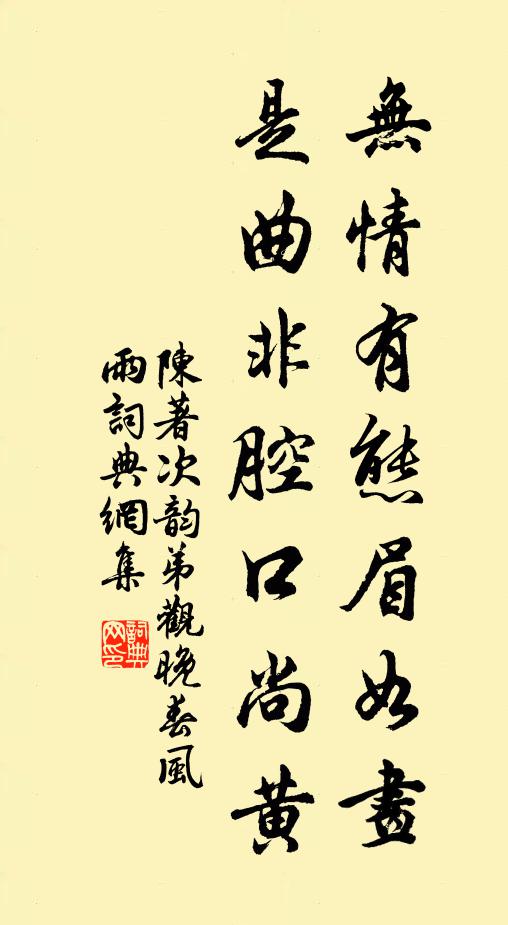 無情有態眉如畫
是曲非腔口尚黃
陳著次韵弟觀晚春風
雨詞典網集
詞典網印